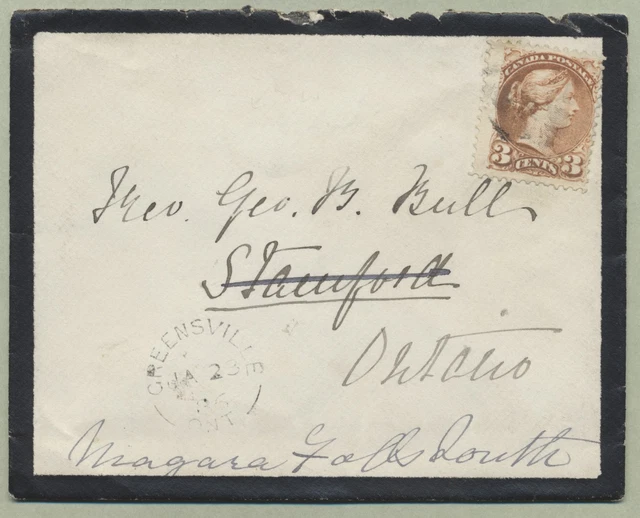 CANADA POSTAGE
3 CENTS 3
Rev. Geo. B. Bull
Stamford
Ontario
GREENSVILLE
JA 23
ONT
Niagara Falls South